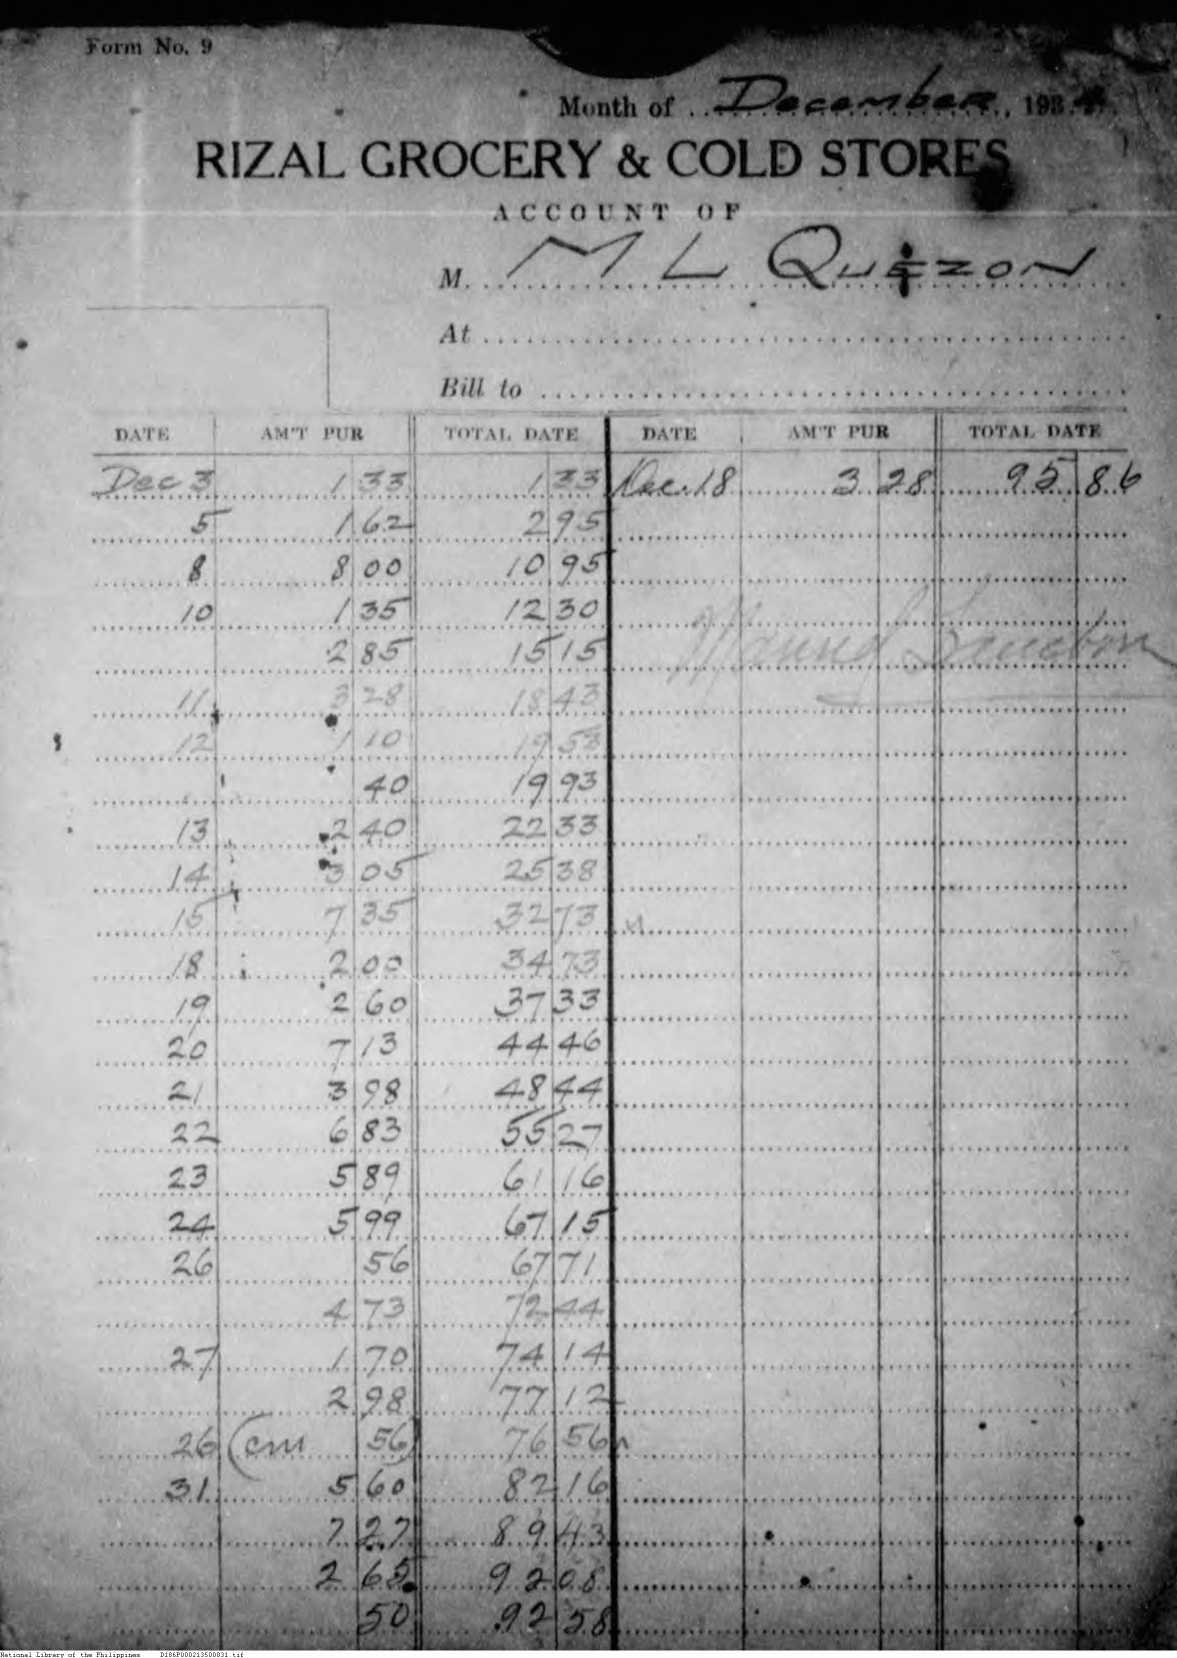 Form No. 9
Month of December, 1934
RIZAL GROCERY & COLD STORES
ACCOUNT OF
M. M L QUEZON
At
Bill to
DATE AM'T PUR TOTAL DATE DATE AM'T PUR TOTAL DATE
Dec 3 1 33 1 33 Dec. 18 3 28 95 86
5 1 62 2 95
8 8 00 10 95
10 1 35 12 30
2 85 15 15
11 3 28 18 43
12 1 10 19 53
40 19 93
13 2 40 22 33
14 3 05 25 38
15 7 35 32 73
18 2 00 34 73
19 2 60 37 33
20 7 13 44 46
21 3 98 48 44
22 6 83 55 27
23 5 89 61 16
24 5 99 67 15
26 56 67 71
4 73 72 44
27 1 70 74 14
2 98 77 12
26 (cm 56) 76 56
31 5 60 82 16
7 27 89 43
2 65 92 08
50 92 58
National Library of the Philippines D186P000213500031.tif